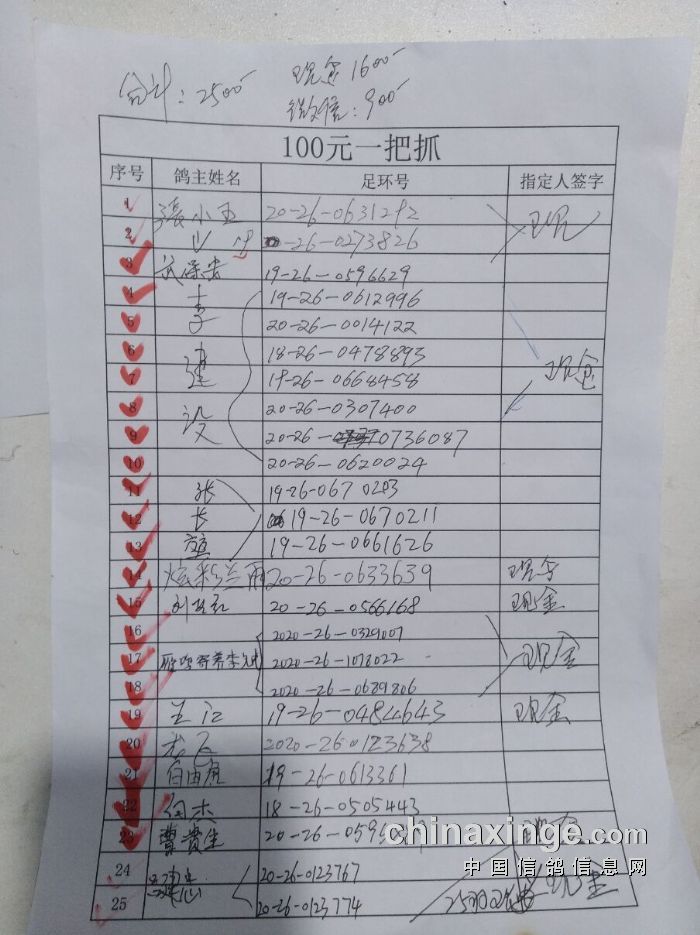 合计：2500 现金1600
微信：900
100元一把抓
序号 鸽主姓名 足环号 指定人签字
1 張小五 20-26-0631292 现
2 -26-0273826
3 武保安 19-26-0596629
4 李 19-26-0612996
5 20-26-0014122
6 建 18-26-0478893
7 19-26-0668458 现金
8 设 20-26-0307400
9 20-26-0736087
10 20-26-0620024
11 张 19-26-0670203
12 长 19-26-0670211
13 19-26-0661626
14 炫彩兰雨 20-26-0633639 现金
15 刘 20-26-0566168 现金
16 2020-26-0329007
17 2020-26-1078022 现金
18 2020-26-0689806
19 王江 19-26-0484643 现金
20 2020-26-0123638
21 自由鸟 19-26-0613361
22 18-26-0505443
23 曹贵生 20-26-059 现金
24 20-26-0123767
25 20-26-0123774 25羽 现金
chinaxinge.com
中国信鸽信息网